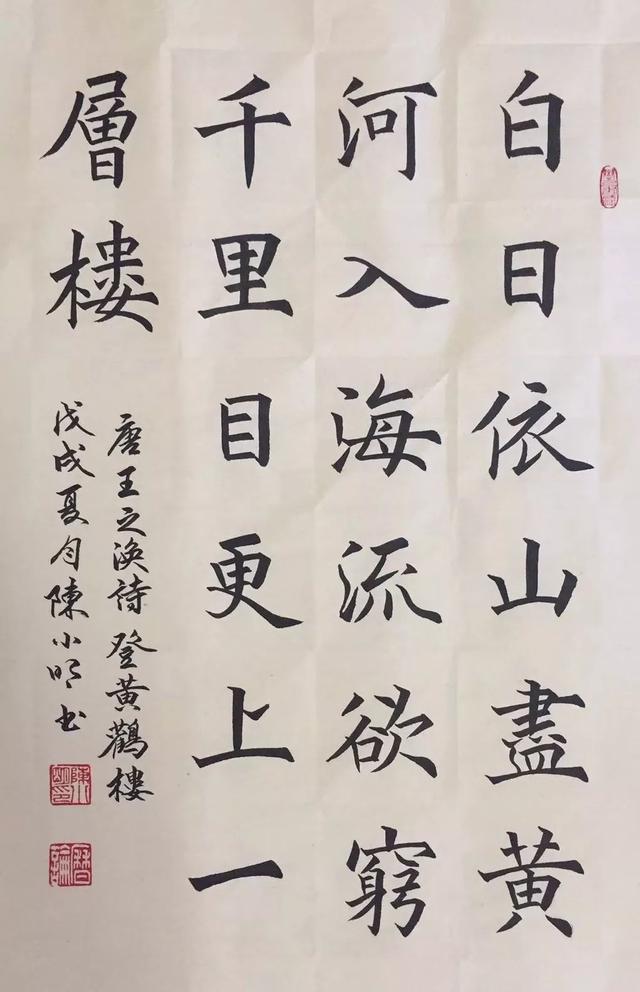 白日依山盡黃
河入海流欲窮
千里目更上一
層樓
唐王之渙詩登黃鸛樓
戊戌夏月陳小明书